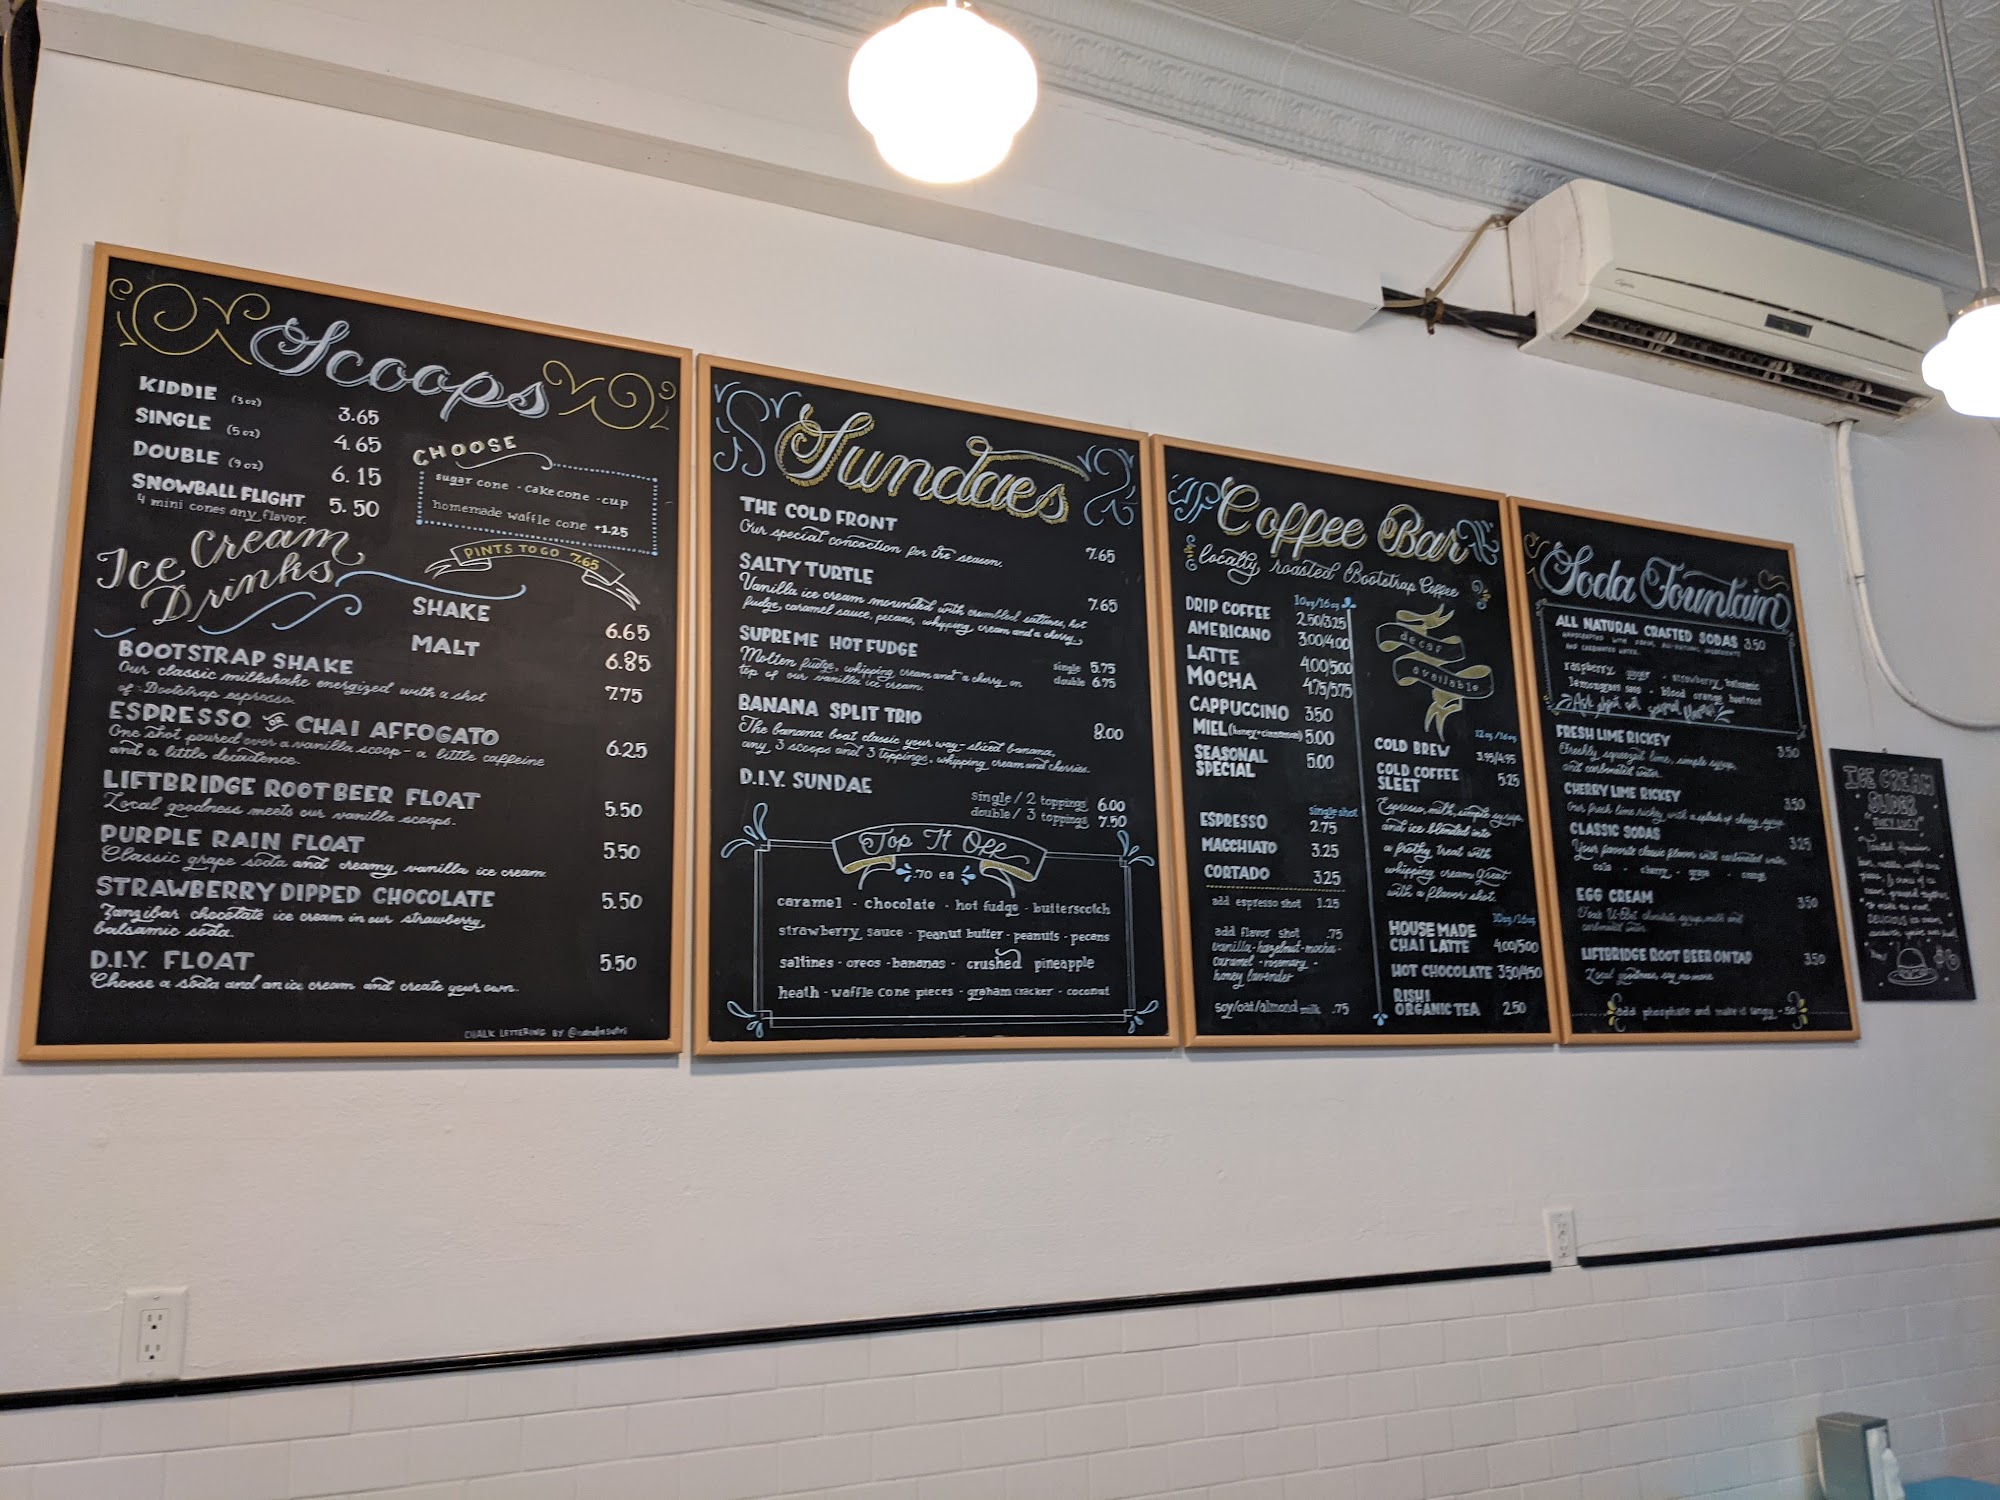 Scoops
KIDDIE (3oz) 3.65
SINGLE (5oz) 4.65
DOUBLE (9oz) 6.15
SNOWBALL FLIGHT 5.50
4 mini cones any flavor.
CHOOSE
sugar cone - cake cone - cup
homemade waffle cone +1.25
PINTS TO GO 7.65
Ice Cream
Drinks
SHAKE 6.65
MALT 6.85
BOOTSTRAP SHAKE 7.75
Our classic milkshake energized with a shot
of Bootstrap espresso.
ESPRESSO OR CHAI AFFOGATO 6.25
One shot poured over a vanilla scoop - a little caffeine
and a little decadence.
LIFTBRIDGE ROOT BEER FLOAT 5.50
Local goodness meets our vanilla scoops.
PURPLE RAIN FLOAT 5.50
Classic grape soda and creamy vanilla ice cream.
STRAWBERRY DIPPED CHOCOLATE 5.50
Zanzibar chocolate ice cream in our strawberry
balsamic soda.
D.I.Y. FLOAT 5.50
Choose a soda and an ice cream and create your own.
CHALK LETTERING BY
Sundaes
THE COLD FRONT 7.65
Our special concoction for the season.
SALTY TURTLE 7.65
Vanilla ice cream mounded with crumbled saltines, hot
fudge, caramel sauce, pecans, whipping cream and a cherry
SUPREME HOT FUDGE single 5.75
Molten fudge, whipping cream and a cherry on double 6.75
top of our vanilla ice cream.
BANANA SPLIT TRIO 8.00
The banana boat classic your way - sliced banana,
any 3 scoops and 3 toppings, whipping cream and cherries.
D.I.Y. SUNDAE
single / 2 toppings 6.00
double / 3 toppings 7.50
Top It Off
.70 ea
caramel - chocolate - hot fudge - butterscotch
strawberry sauce - peanut butter - peanuts - pecans
saltines - oreos - bananas - crushed pineapple
heath - waffle cone pieces - graham cracker - coconut
Coffee Bar
locally roasted Bootstrap Coffee
10oz/16oz
DRIP COFFEE 2.50/3.25
AMERICANO 3.00/4.00
LATTE 4.00/5.00
MOCHA 4.75/5.75
CAPPUCCINO 3.50
MIEL (honey + cinnamon) 5.00
SEASONAL
SPECIAL 5.00
single shot
ESPRESSO 2.75
MACCHIATO 3.25
CORTADO 3.25
add espresso shot 1.25
add flavor shot .75
vanilla - hazelnut - mocha -
caramel - rosemary -
honey lavender
soy/oat/almond milk .75
decaf
available
12oz/16oz
COLD BREW 3.95/4.95
COLD COFFEE 5.25
SLEET
Espresso, milk, simple syrup,
and ice blended into
a frothy treat with
whipping cream. Great
with a flavor shot.
10oz/16oz
HOUSEMADE
CHAI LATTE 4.00/5.00
HOT CHOCOLATE 3.50/4.50
RISHI
ORGANIC TEA 2.50
Soda Fountain
ALL NATURAL CRAFTED SODAS 3.50
HANDCRAFTED WITH ALL-NATURAL INGREDIENTS
AND CARBONATED WATER.
raspberry - ginger - strawberry balsamic
lemongrass - blood orange - beetroot
Ask about our seasonal flavor
FRESH LIME RICKEY 3.50
Freshly squeezed lime, simple syrup,
and carbonated water.
CHERRY LIME RICKEY 3.50
Our fresh lime rickey with a splash of cherry syrup.
CLASSIC SODAS 3.25
Your favorite classic flavors with carbonated water.
cola - cherry - grape - orange
EGG CREAM 3.50
Fox's U-Bet chocolate syrup, milk and
carbonated water.
LIFTBRIDGE ROOT BEER ON TAP 3.50
Local goodness, say no more
add phosphate and make it tangy - .50
ICE CREAM
SLIDER
"JUICY LUCY"
Toasted Hawaiian